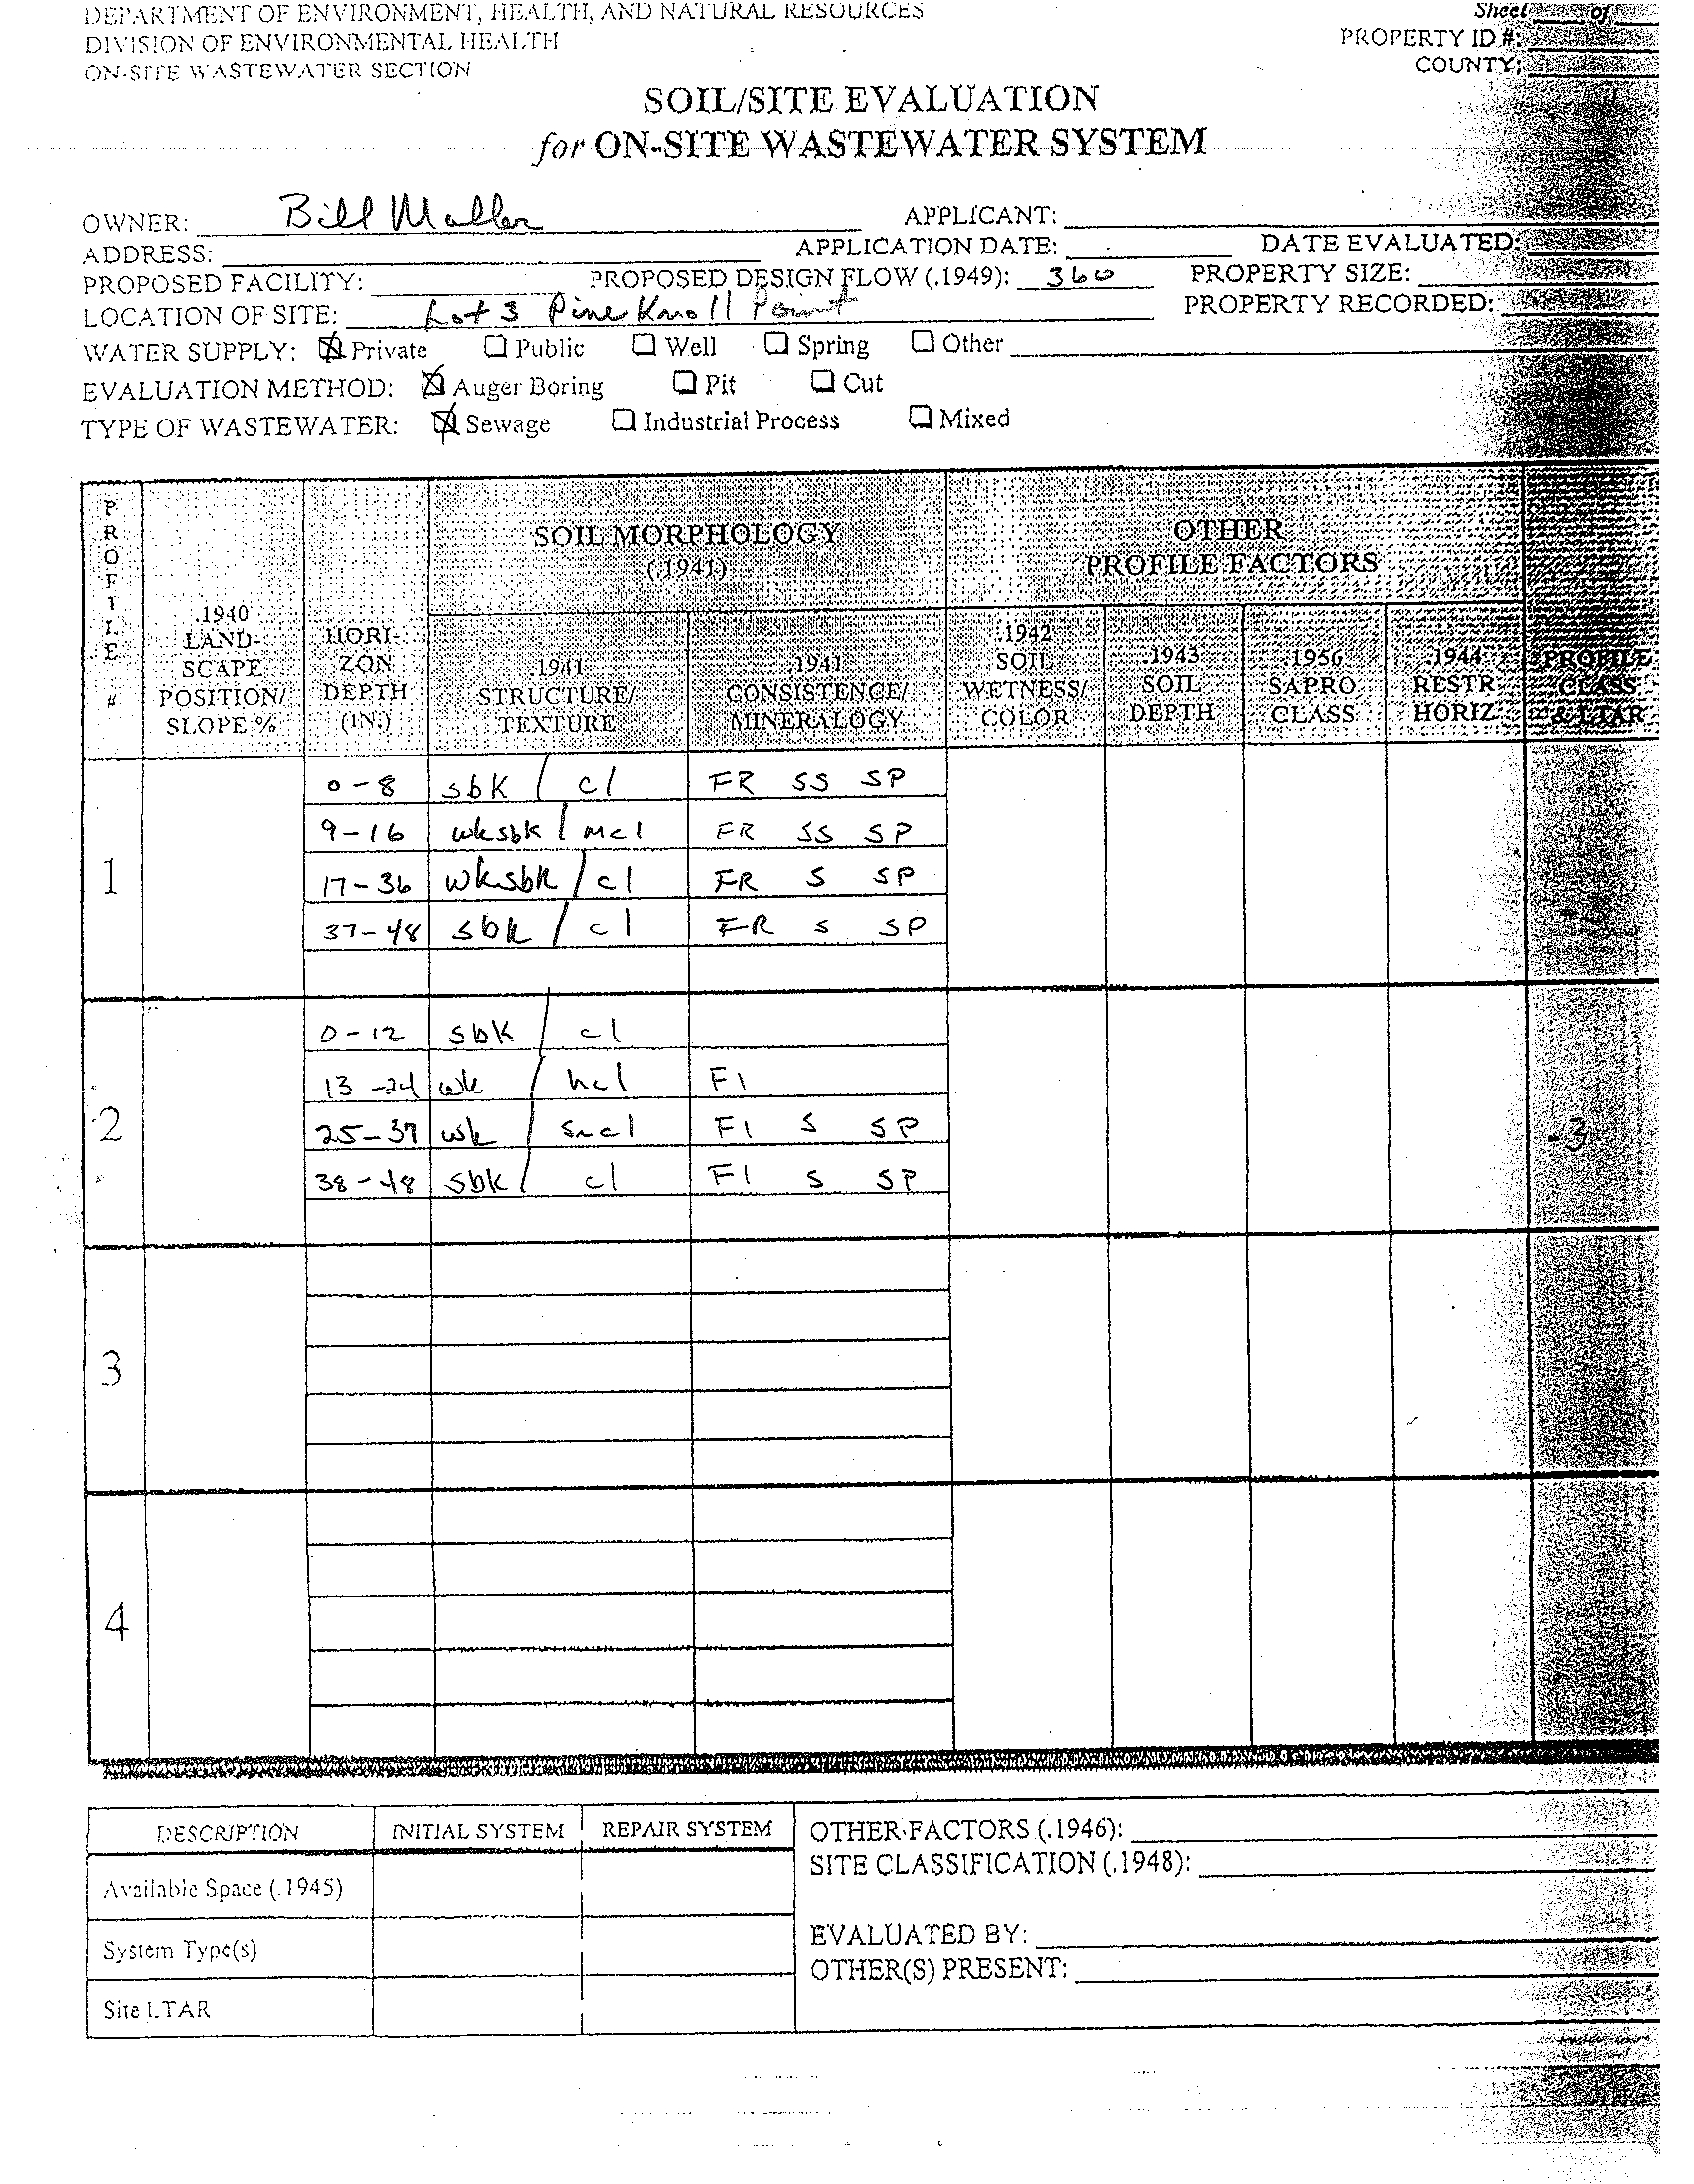 DEPARTMENT OF ENVIRONMENT, HEALTH, AND NATURAL RESOURCES
Sheet of
DIVISION OF ENVIRONMENTAL HEALTH
PROPERTY ID #:
ON-SITE WASTEWATER SECTION
COUNTY:
SOIL/SITE EVALUATION
for ON-SITE WASTEWATER SYSTEM
OWNER: Bill APPLICANT:
ADDRESS: APPLICATION DATE: DATE EVALUATED:
PROPOSED FACILITY: PROPOSED DESIGN FLOW (.1949): 360 PROPERTY SIZE:
LOCATION OF SITE: Lot 3 Pine Knoll Point PROPERTY RECORDED:
WATER SUPPLY: ☒ Private ☐ Public ☐ Well ☐ Spring ☐ Other
EVALUATION METHOD: ☒ Auger Boring ☐ Pit ☐ Cut
TYPE OF WASTEWATER: ☒ Sewage ☐ Industrial Process ☐ Mixed
PROFILE #
.1940 LAND-SCAPE POSITION/ SLOPE %
HORI-ZON DEPTH (IN.)
SOIL MORPHOLOGY (.1941)
.1941 STRUCTURE/ TEXTURE
.1941 CONSISTENCE/ MINERALOGY
OTHER PROFILE FACTORS
.1942 SOIL WETNESS/ COLOR
.1943 SOIL DEPTH
.1956 SAPRO CLASS
.1944 RESTR HORIZ
PROFILE CLASS & LTAR
1
0-8 sbk / cl FR SS SP
9-16 wksbk / mcl FR SS SP
17-36 wksbk / cl FR S SP
37-48 sbk / cl FR S SP
2
0-12 sbk / cl
13-24 wk / hcl FI
25-37 wk / cl FI S SP
.3
38-48 sbk / cl FI S SP
3
4
DESCRIPTION INITIAL SYSTEM REPAIR SYSTEM
OTHER FACTORS (.1946):
SITE CLASSIFICATION (.1948):
Available Space (.1945)
EVALUATED BY:
System Type(s)
OTHER(S) PRESENT:
Site LTAR